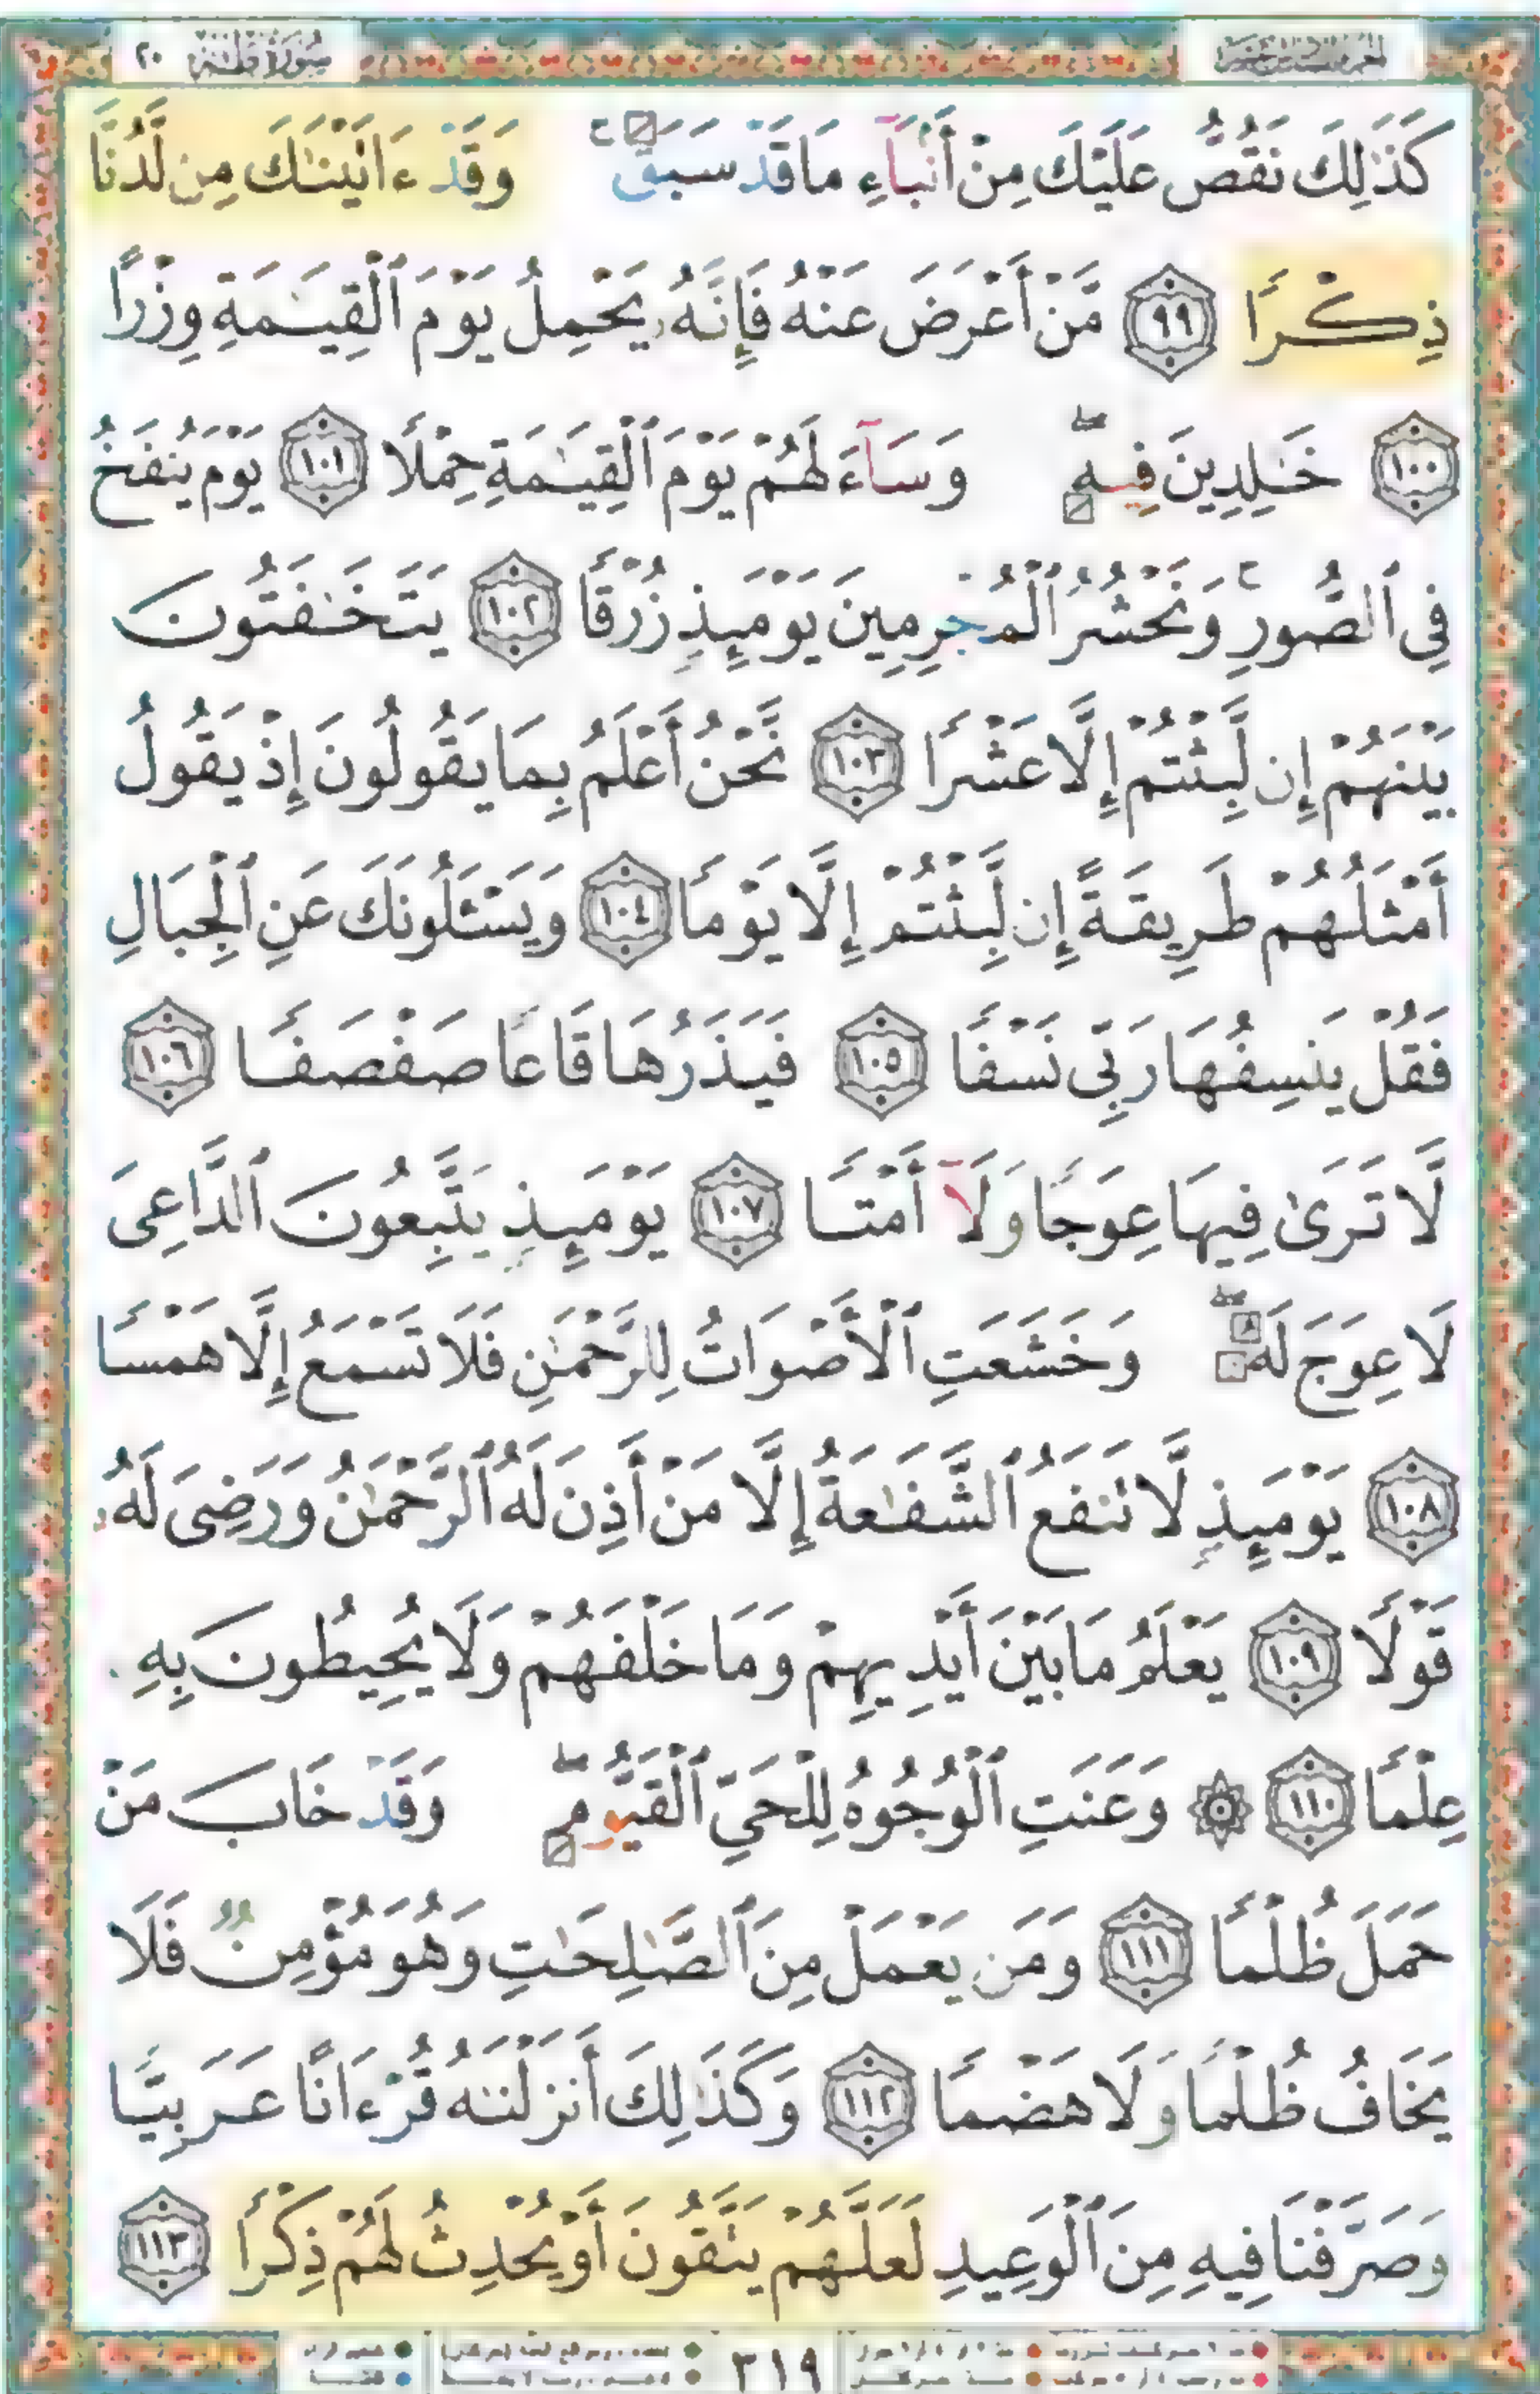 سُورَةُ طٰهٰ ٢٠
كَذَٰلِكَ نَقُصُّ عَلَيْكَ مِنْ أَنۢبَآءِ مَا قَدْ سَبَقَ ۚ وَقَدْ ءَاتَيْنَٰكَ مِن لَّدُنَّا
ذِكْرًا ٩٩ مَّنْ أَعْرَضَ عَنْهُ فَإِنَّهُۥ يَحْمِلُ يَوْمَ ٱلْقِيَٰمَةِ وِزْرًا
١٠٠ خَٰلِدِينَ فِيهِ ۖ وَسَآءَ لَهُمْ يَوْمَ ٱلْقِيَٰمَةِ حِمْلًا ١٠١ يَوْمَ يُنفَخُ
فِى ٱلصُّورِ ۚ وَنَحْشُرُ ٱلْمُجْرِمِينَ يَوْمَئِذٍ زُرْقًا ١٠٢ يَتَخَٰفَتُونَ
بَيْنَهُمْ إِن لَّبِثْتُمْ إِلَّا عَشْرًا ١٠٣ نَّحْنُ أَعْلَمُ بِمَا يَقُولُونَ إِذْ يَقُولُ
أَمْثَلُهُمْ طَرِيقَةً إِن لَّبِثْتُمْ إِلَّا يَوْمًا ١٠٤ وَيَسْـَٔلُونَكَ عَنِ ٱلْجِبَالِ
فَقُلْ يَنسِفُهَا رَبِّى نَسْفًا ١٠٥ فَيَذَرُهَا قَاعًا صَفْصَفًا ١٠٦
لَّا تَرَىٰ فِيهَا عِوَجًا وَلَآ أَمْتًا ١٠٧ يَوْمَئِذٍ يَتَّبِعُونَ ٱلدَّاعِىَ
لَا عِوَجَ لَهُۥ ۖ وَخَشَعَتِ ٱلْأَصْوَاتُ لِلرَّحْمَٰنِ فَلَا تَسْمَعُ إِلَّا هَمْسًا
١٠٨ يَوْمَئِذٍ لَّا تَنفَعُ ٱلشَّفَٰعَةُ إِلَّا مَنْ أَذِنَ لَهُ ٱلرَّحْمَٰنُ وَرَضِىَ لَهُۥ
قَوْلًا ١٠٩ يَعْلَمُ مَا بَيْنَ أَيْدِيهِمْ وَمَا خَلْفَهُمْ وَلَا يُحِيطُونَ بِهِۦ
عِلْمًا ١١٠ ۞ وَعَنَتِ ٱلْوُجُوهُ لِلْحَىِّ ٱلْقَيُّومِ ۖ وَقَدْ خَابَ مَنْ
حَمَلَ ظُلْمًا ١١١ وَمَن يَعْمَلْ مِنَ ٱلصَّٰلِحَٰتِ وَهُوَ مُؤْمِنٌ فَلَا
يَخَافُ ظُلْمًا وَلَا هَضْمًا ١١٢ وَكَذَٰلِكَ أَنزَلْنَٰهُ قُرْءَانًا عَرَبِيًّا
وَصَرَّفْنَا فِيهِ مِنَ ٱلْوَعِيدِ لَعَلَّهُمْ يَتَّقُونَ أَوْ يُحْدِثُ لَهُمْ ذِكْرًا ١١٣
٣١٩